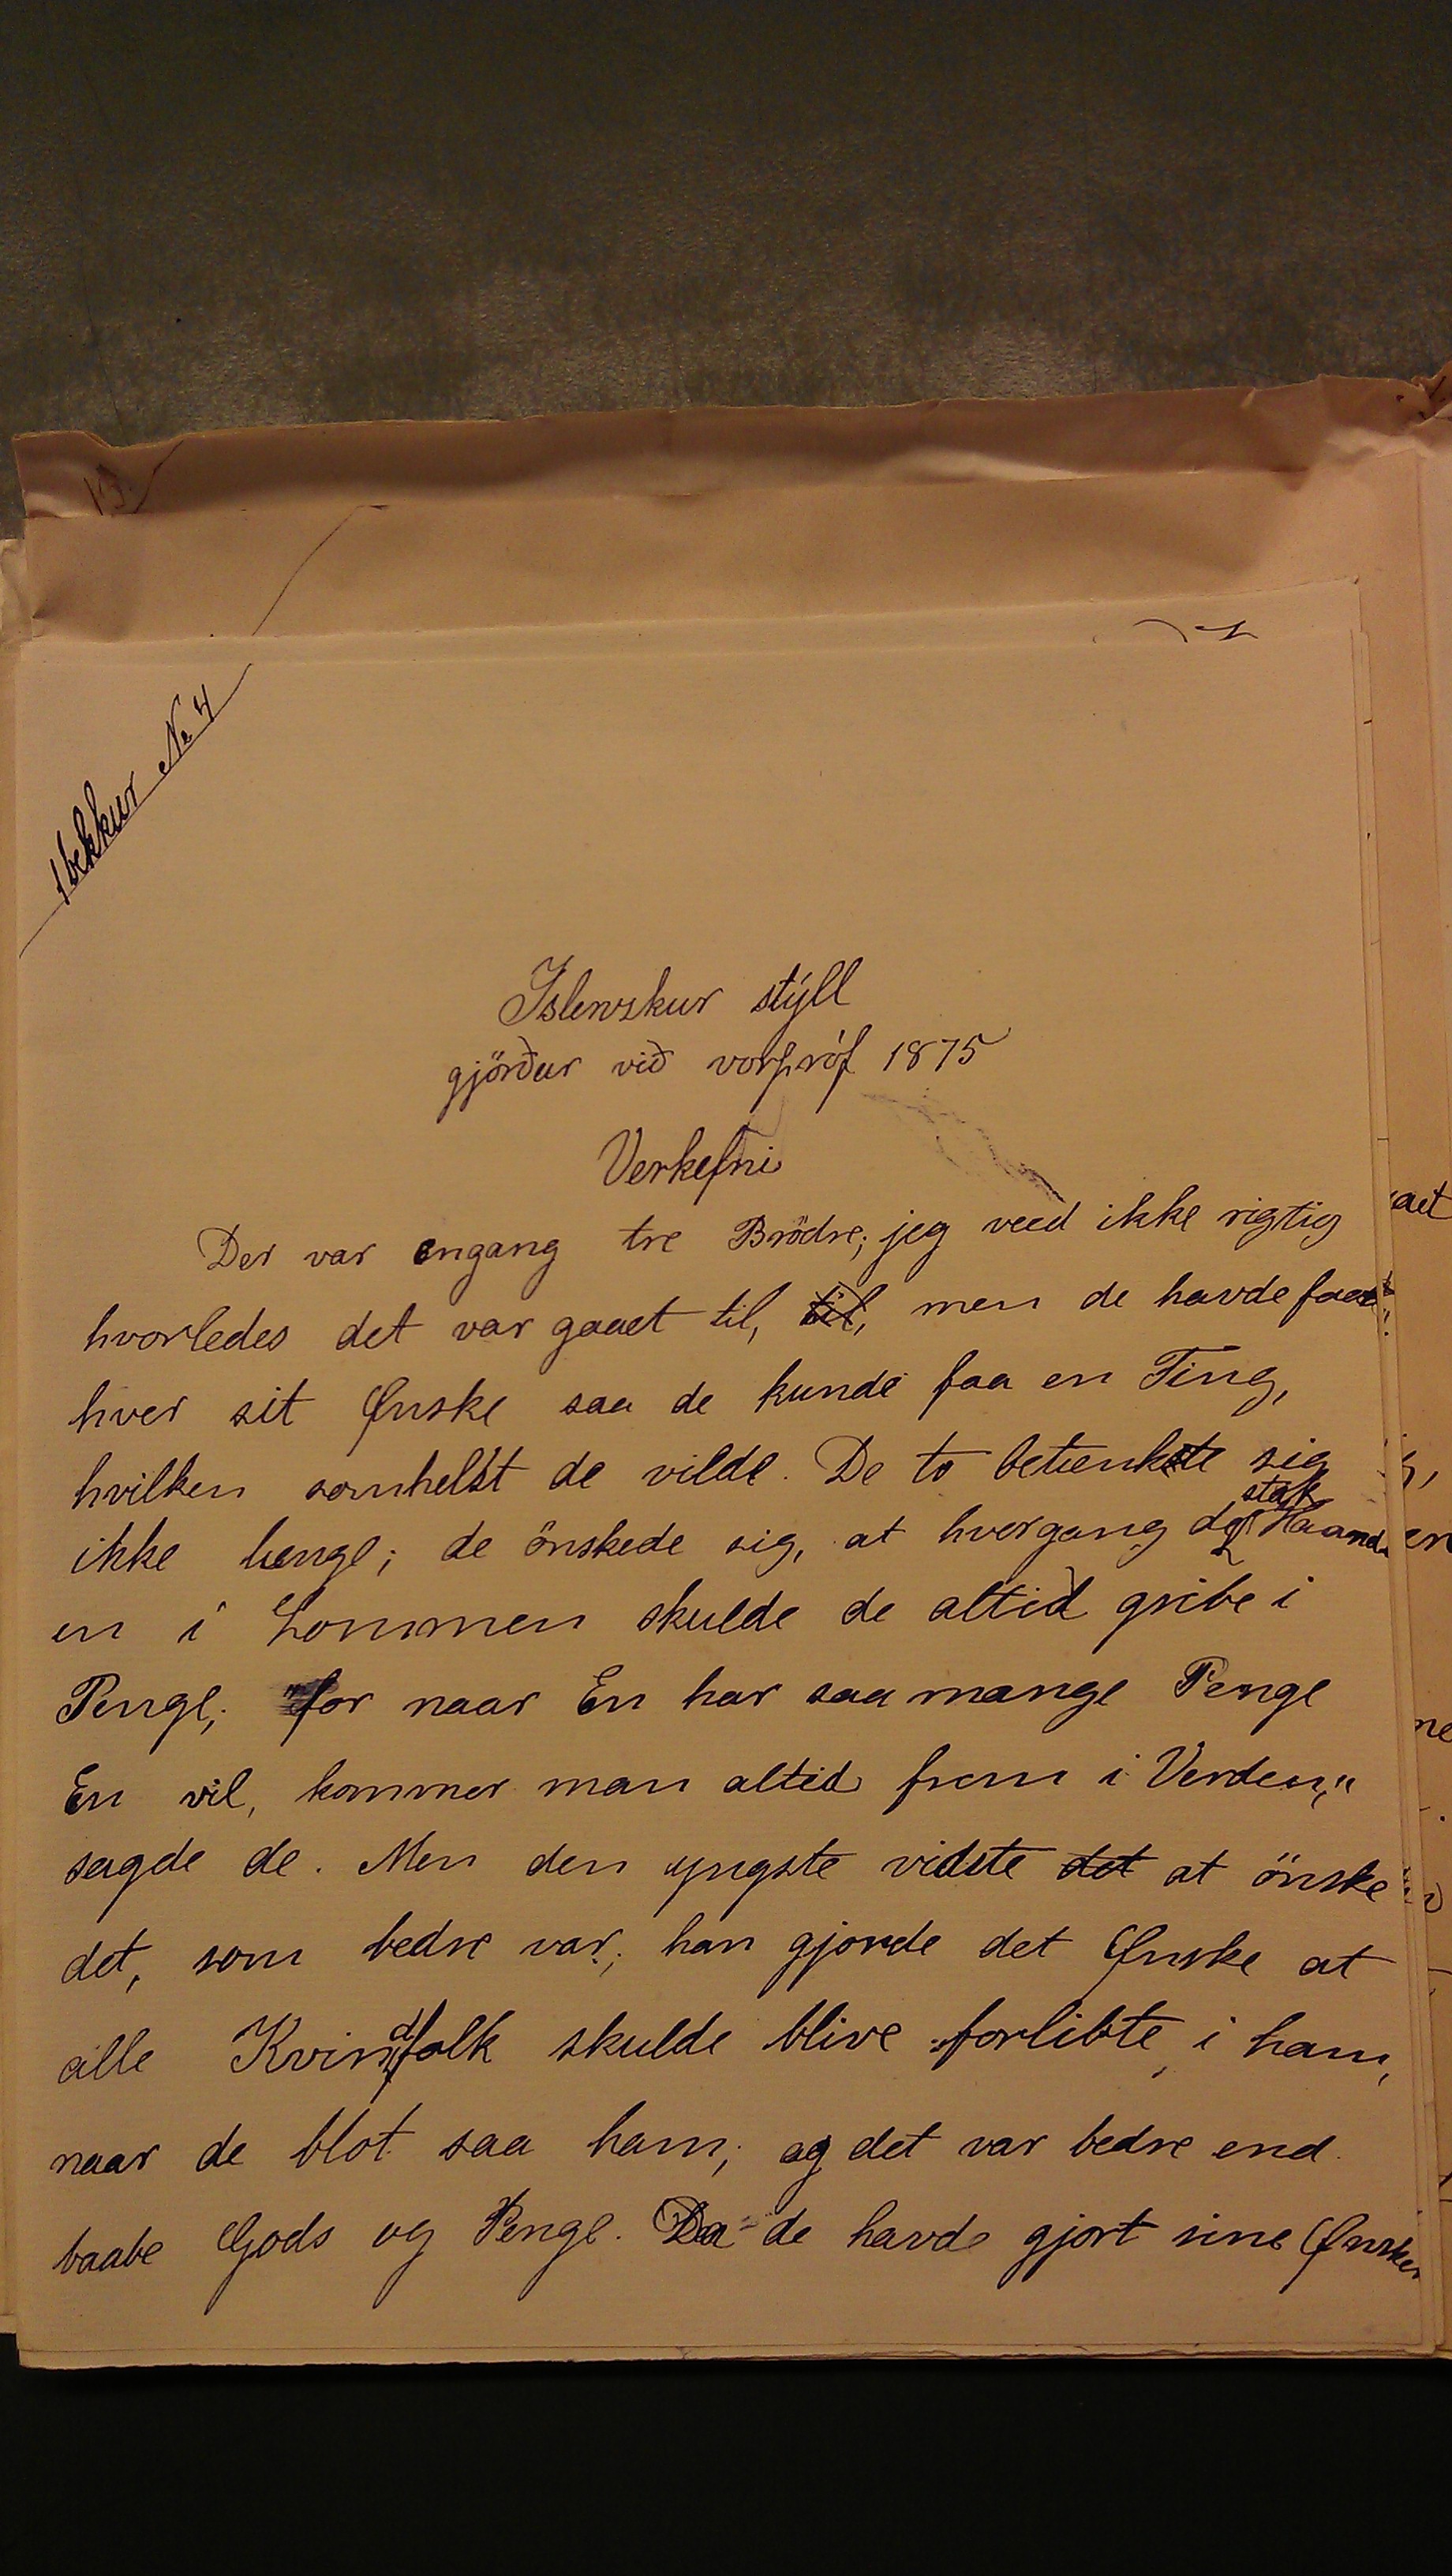 1 bekkur No 4
Íslenzkur stýll
gjörður við vorpróf 1875
Verkefni
Der var engang tre Brödre; jeg veed ikke rigtig
hvorledes det var gaaet til, til, men de havde faaet
hver sit Ønske saa de kunde faa en Ting,
hvilken somhelst de vilde. De to betænkte sig
ikke længe; de önskede sig, at hvergang de stak Haand-
en i Lommen skulde de altid gribe i
Penge; "for naar En har saa mange Penge
En vil, kommer man altid frem i Verden,"
sagde de. Men den yngste vidste det at önske
det, som bedre var; han gjorde det Ønske at
alle Kvindfolk skulde blive forlibte i ham,
naar de blot saa ham; og det var bedre end
baabe Gods og Penge. Da de havde gjort sine Ønsker